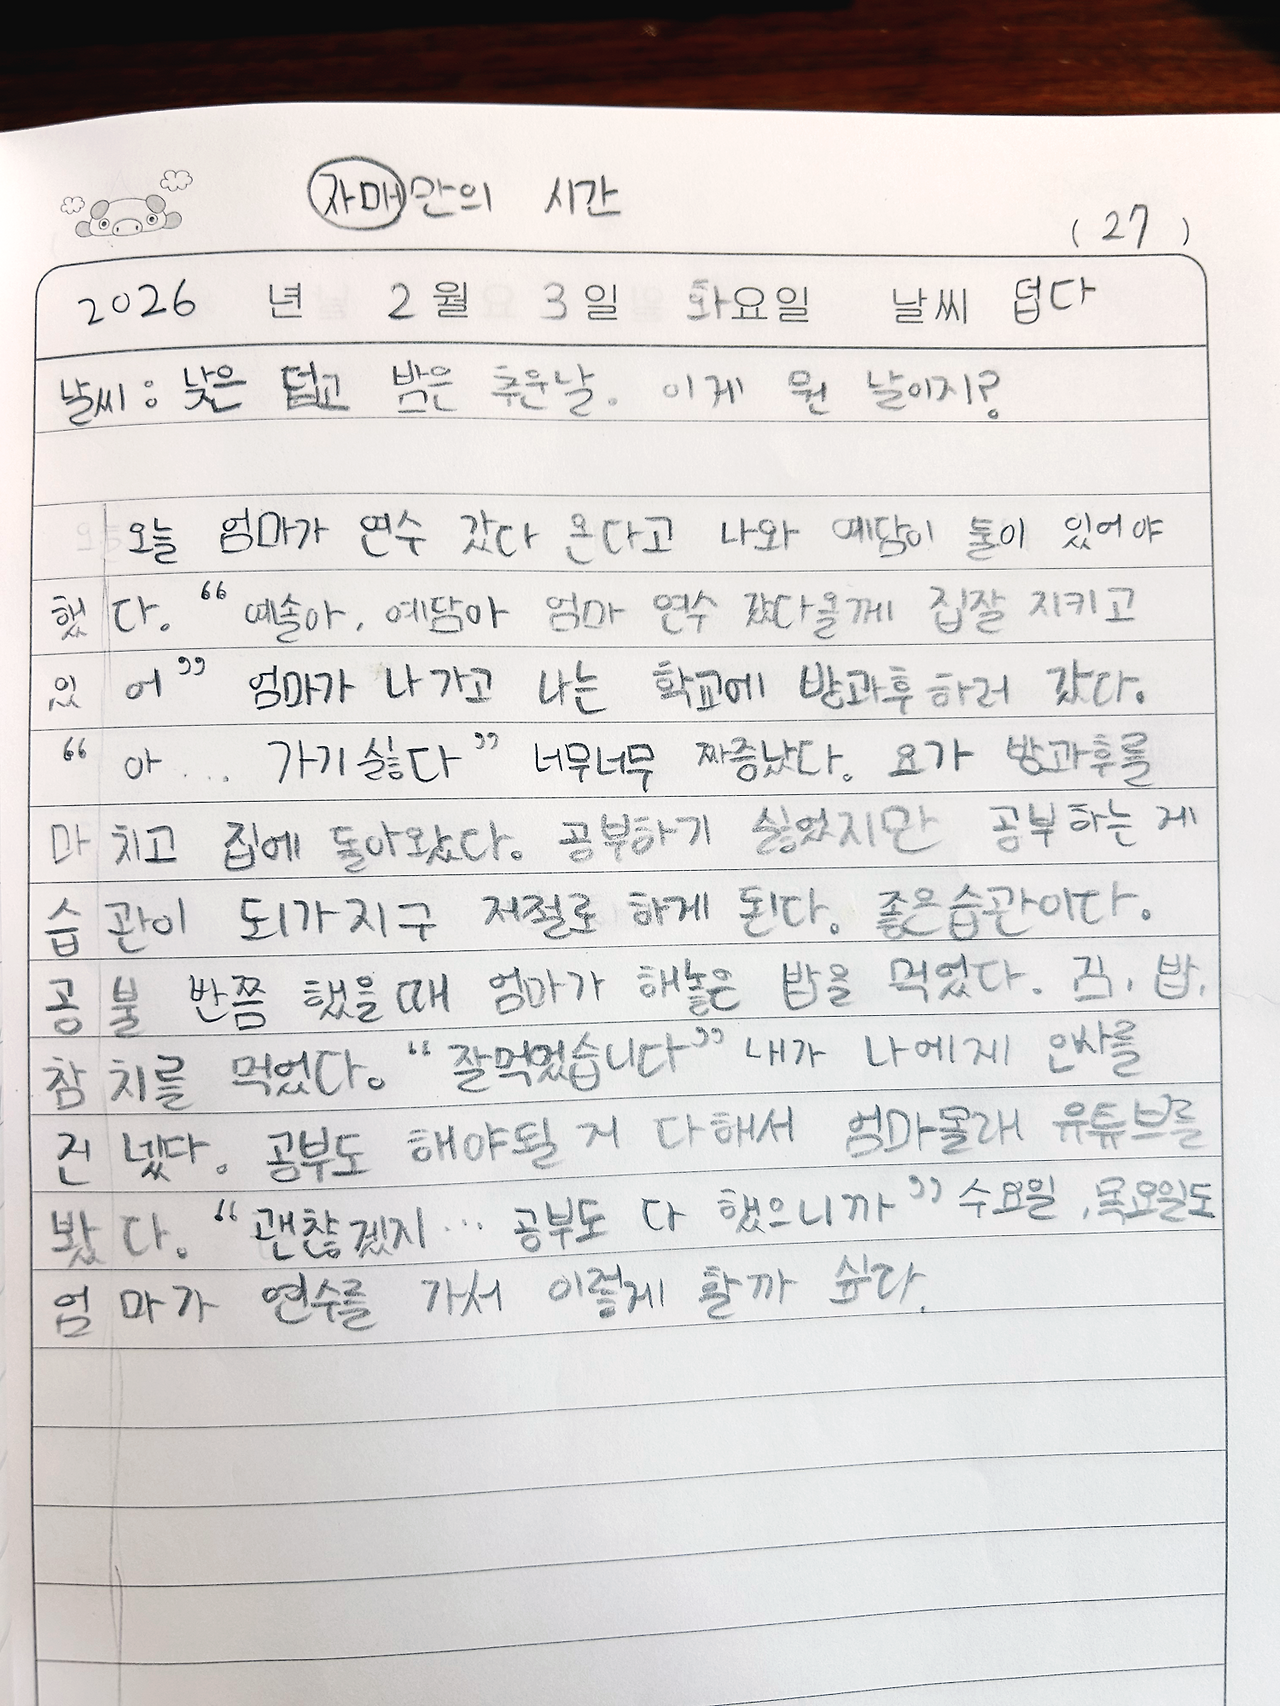 자매만의 시간
( 27 )
2026 년 2 월 3 일 화요일 날씨 덥다
날씨 : 낮은 덥고 밤은 추운날. 이게 뭔 날이지?
오늘 엄마가 연수 갔다 온다고 나와 예담이 둘이 있어야
했다. “예솔아, 예담아 엄마 연수 갔다올께 집잘 지키고
있어” 엄마가 나가고 나는 학교에 방과후하러 갔다.
“아... 가기싫다” 너무너무 짜증났다. 요가 방과후를
마치고 집에 돌아왔다. 공부하기 싫었지만 공부하는게
습관이 되가지구 저절로 하게 된다. 좋은습관이다.
공불 반쯤 했을때 엄마가 해놓은 밥을 먹었다. 김, 밥,
참치를 먹었다. “잘먹었습니다” 내가 나에게 인사를
건넸다. 공부도 해야될 거 다해서 엄마몰래 유튜브를
봤다. “괜찮겠지... 공부도 다 했으니까” 수요일, 목요일도
엄마가 연수를 가서 이렇게 할까 싶다.